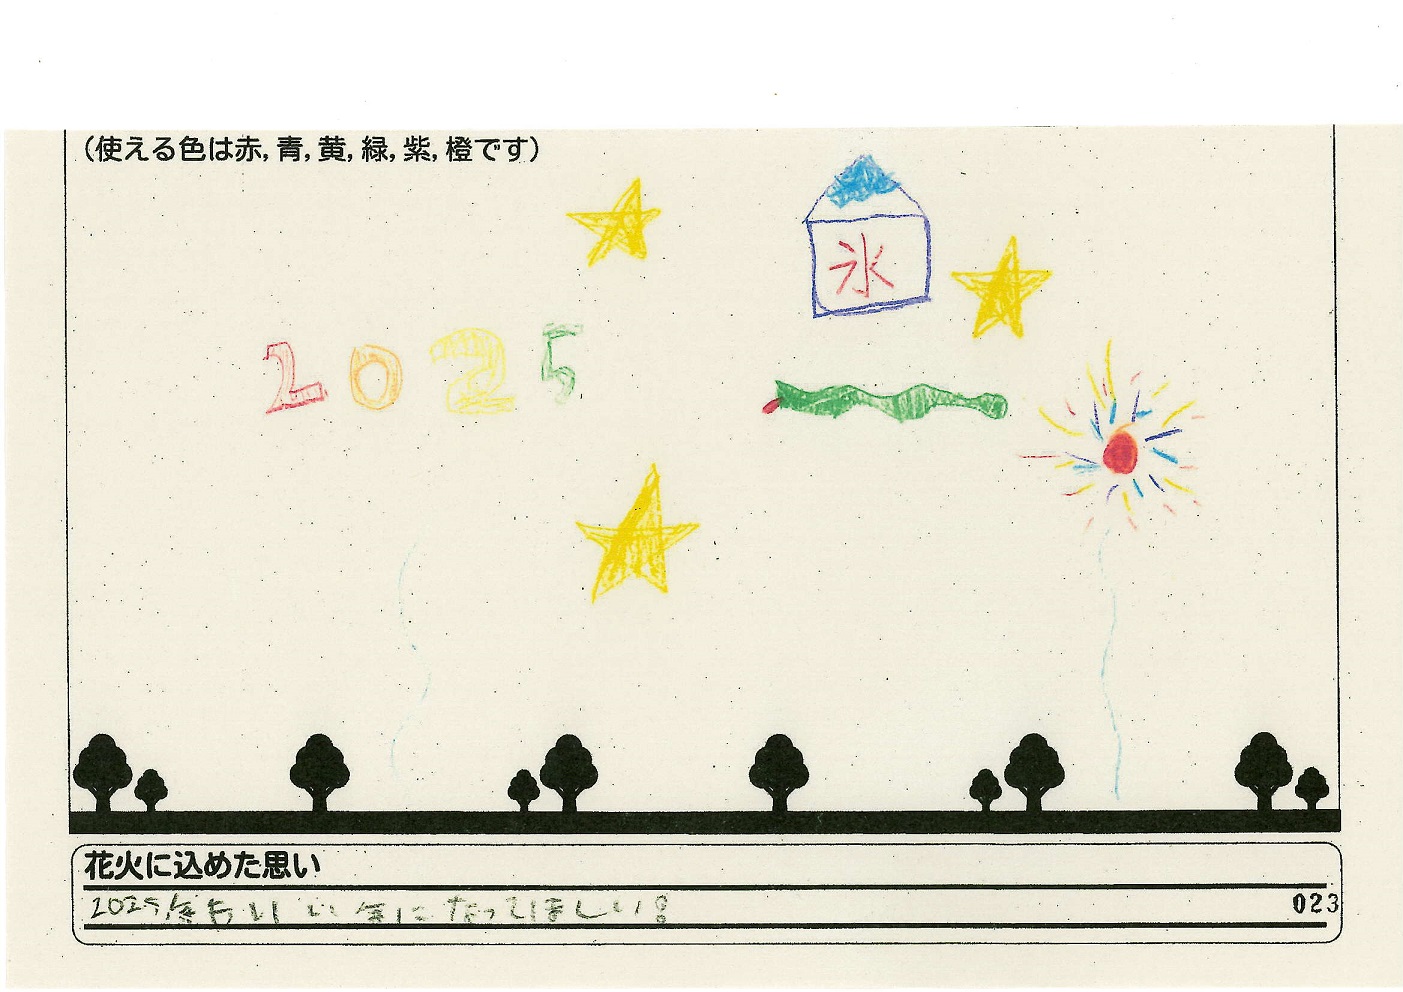 (使える色は赤, 青, 黄, 緑, 紫, 橙です)
氷
2025
花火に込めた思い
2025年もいい年になってほしい!
023